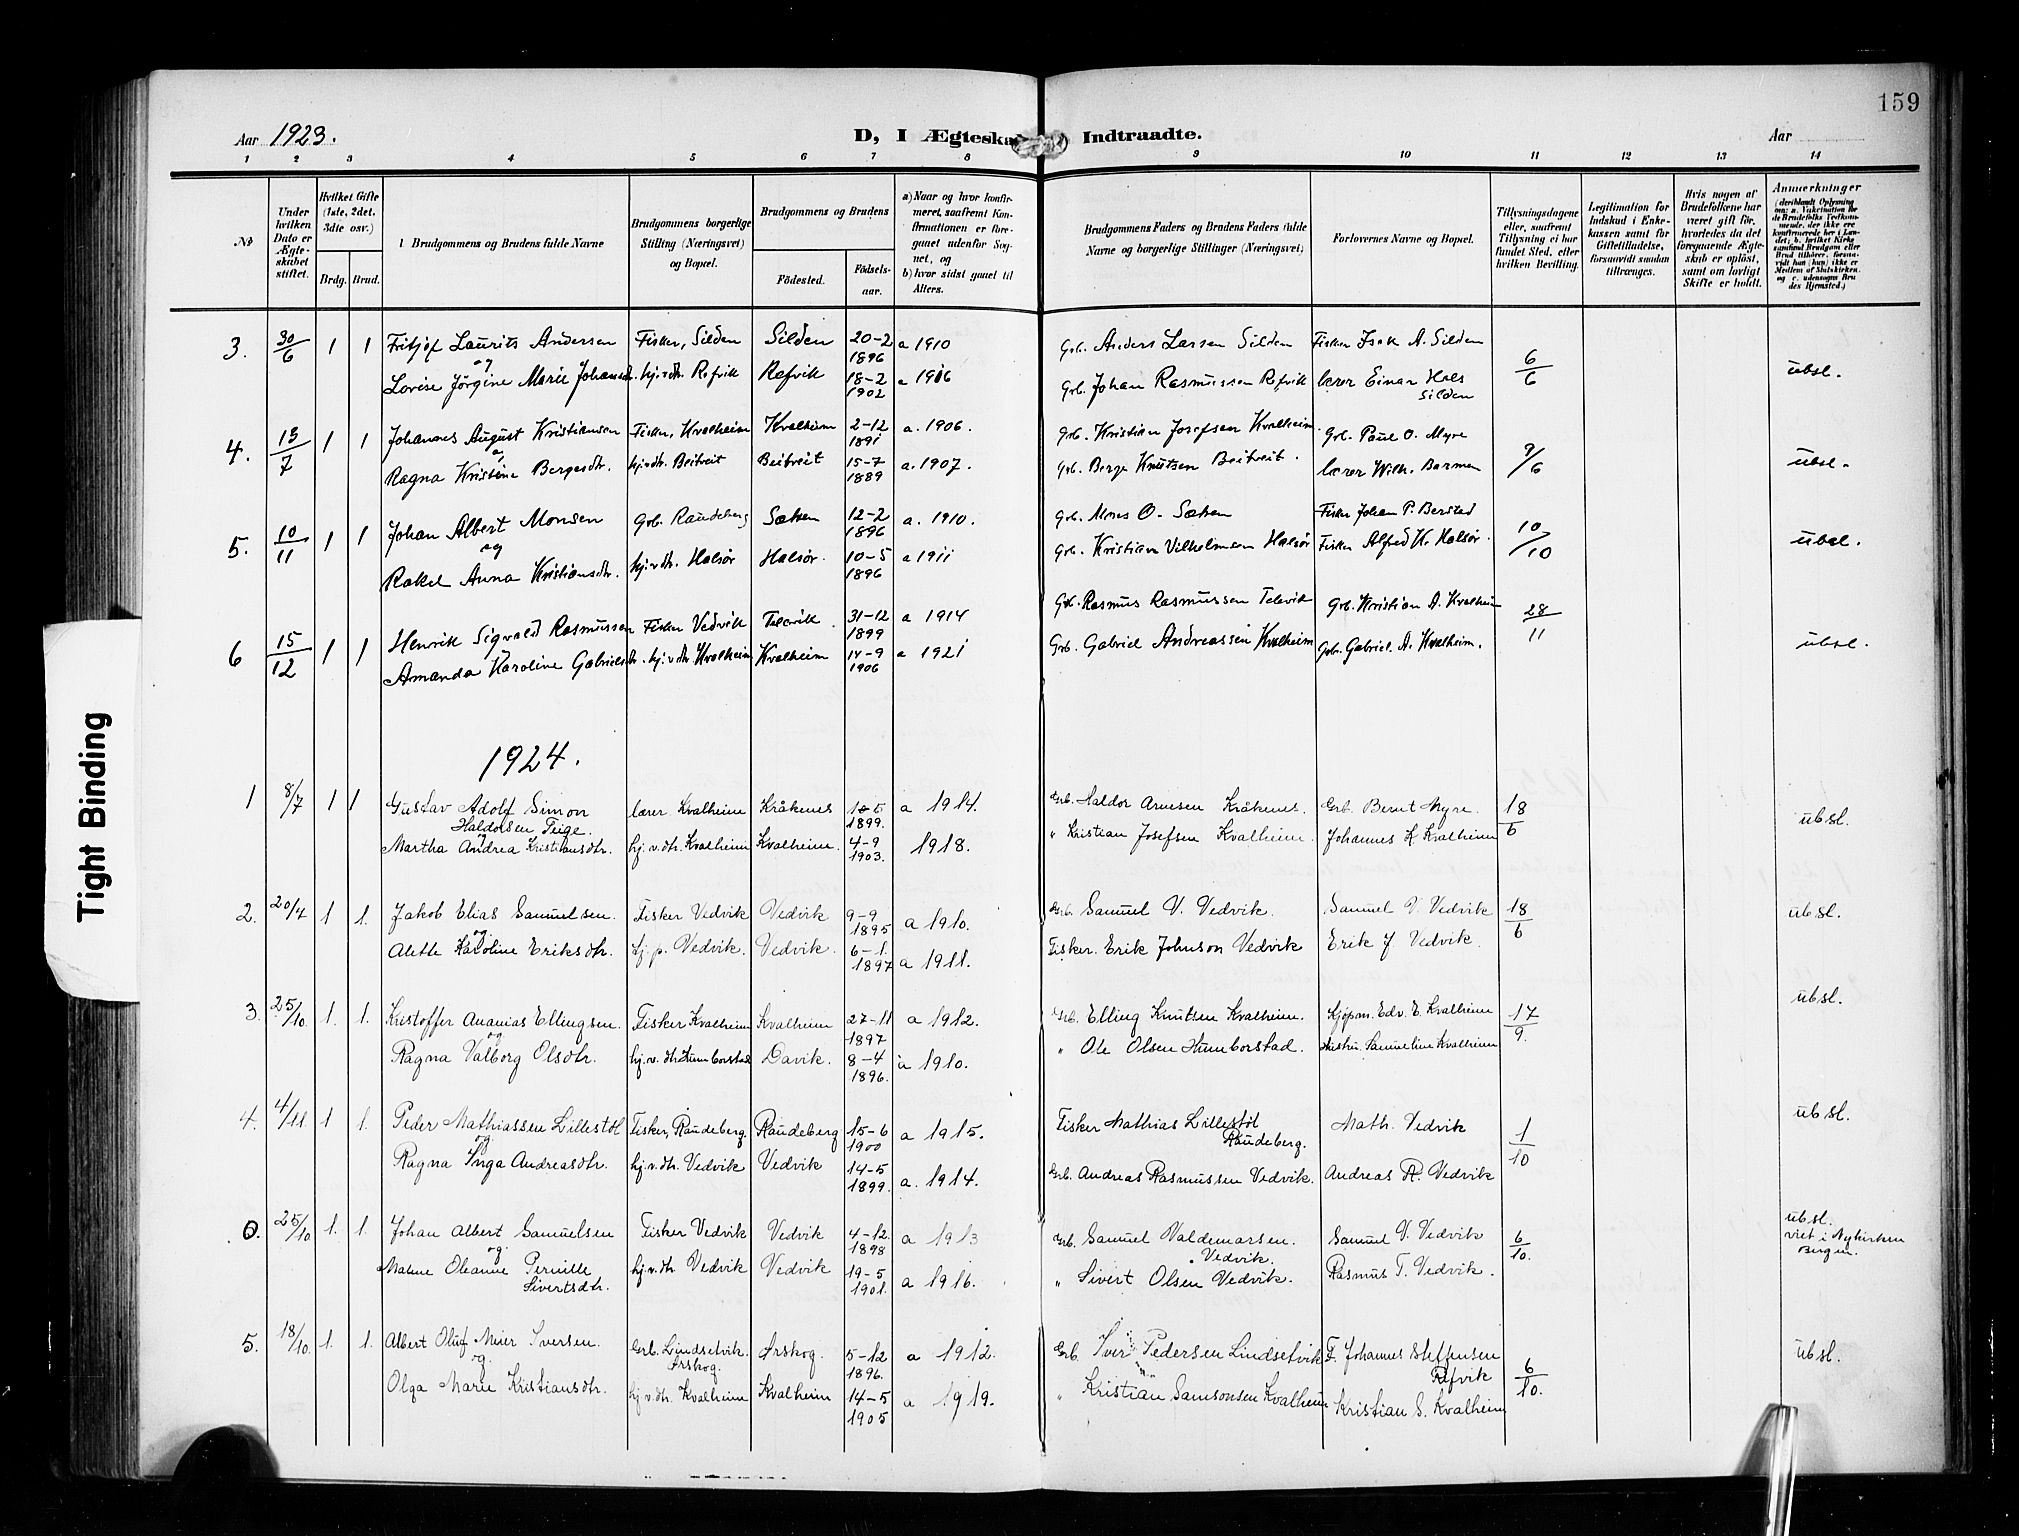 159
Aar 1923.
D, I Ægteska Indtraadte.
Aar
1 2 3 4 5 6 7 8 9 10 11 12 13 14
№
Under hvilken Dato er Ægteskabet stiftet.
Hvilket Gifte (1ste, 2det, 3die osv.)
Brdg. Brud.
Brudgommens og Brudens fulde Navne
Brudgommens borgerlige Stilling (Næringsvei) og Bopæl.
Brudgommens og Brudens
Födested.
Födselsaar.
a) Naar og hvor konfirmeret, saafremt Konfirmationen er foregaaet udenfor Sognet, og
b) hvor sidst gaaet til Alters.
Brudgommens Faders og Brudens Faders fulde Navne og borgerlige Stillinger (Næringsvei)
Forlovernes Navne og Bopæl.
Tillysningsdagene eller, saafremt Tillysning ei har fundet Sted, efter hvilken Bevilling.
Legitimation for Indskud i Enkekassen samt for Giftetilladelse, forsaavidt saadan tiltrænges.
Hvis nogen af Brudefolkene har været gift för, hvorledes da det foregaaende Ægteskab er oplöst, samt om lovligt Skifte er holdt.
Anmærkninger
3. 30/6 1 1 Fritjof Laurits Andersen Fisker, Silden Silden 20-2 1896 a 1910 Grb. Anders Larsen Silden Fisker Isak A. Silden 6/6 ubsl.
og
Lovise Jörgine Marie Johansdtr. hj.v.dtr. Refvik Refvik 18-2 1902 a 1916 Grb. Johan Rasmussen Refvik lærer Einar Hals Silden
4. 13/7 1 1 Johannes August Kristiansen Fisker, Kvalheim Kvalheim 2-12 1891 a. 1906. Grb. Kristian Josefsen Kvalheim. Grb. Paul O. Myre 9/6 ubsl.
Ragna Kristine Bergesdtr. hj.v.dtr. Beitveit Beitveit 15-7 1889 a. 1907. Grb. Berge Knutsen Beitveit. lærer Wilh. Barmen
5. 10/11 1 1 Johan Albert Monsen Grb. Raudeberg Sæten 12-2 1896 a. 1910. Grb. Mons O. Sæten Fisker Johan P. Berstad 10/10 ubsl.
og
Rakel Anna Kristiansdtr. hj.v.dtr. Halsör Halsör. 10-5 1896 a 1911 Grb. Kristian Vilhelmsen Halsör Fisker Alfred K. Halsör.
6 15/12 1 1 Henrik Sigvald Rasmussen Fisker Vedvik 31-12 1899 a 1914 Grb. Rasmus Rasmussen Grb. Kristian A. Kvalheim 28/11 ubsl.
Amanda Karoline Gabrielsdtr. hj.v.dtr Kvalheim Kvalheim 14-9 1906 a 1921 Grb. Gabriel Andreassen Kvalheim Grb. Gabriel. A. Kvalheim.
1924.
1 8/7 1 1 Gustav Adolf Simon lærer Kvalheim Kråkenes 10-5 1899. a 1914. Grb. Haldor Arnesen Kråkenes. Grb. Bernt Myre 18/6 ubsl.
Haldorsen Teige.
Martha Andrea Kristiansdtr. hj.v.dtr. Kvalheim Kvalheim. 4-9 1903. 1918. " Kristian Josefsen Kvalheim. Johannes K Kvalheim
2. 20/4 1 1. Jakob Elias Samuelsen Fisker Vedvik Vedvik 9-9 1895 a 1910. Grb. Samuel V. Vedvik. Samuel V. Vedvik 18/6 ubsl.
og
Alette Karoline Eriksdtr. hj. p. Vedvik. Vedvik. 6-1. 1897 a 1911. Fisker. Erik Johnson Vedvik Erik J. Vedvik.
3. 25/10 1. 1. Kristoffer Ananias Ellingsen. Fisker Kvalheim Kvalheim 27-11 1897 a 1912. Grb. Elling Knutsen Kvalheim. Kjöpm. Edv. E. Kvalheim 17/9. ubsl.
og
Ragna Valborg Olsdtr. hj.v.dtr. Humborstad Davik. 8-4 1896. a 1910. " Ole Olsen Humborstad. Hustru. Samueline Kvalheim
4. 4/11 1 1. Peder Mathiassen Lillestöl Fisker, Raudeberg. Raudeberg 15-6 1900 a 1915. Fisker Mathias Lillestöl Raudeberg. Math. Vedvik 1/10 ubsl.
og
Ragna Inga Andreasdtr. hj.v.dtr. Vedvik Vedvik 14-5 1899. a. 1914. Grb. Andreas Rasmussen Vedvik. Andreas R. Vedvik
0. 25/10 1. 1. Johan Albert Samuelsen Fisker Vedvik Vedvik 4-12. 1898 a 1913 Grb. Samuel Valdemarsen. Vedvik. Samuel V. Vedvik 6/10. ubsl. viet i Nykirken Bergen.
og
Malene Oleanne Pernille Sivertsdtr. hj.v.dtr Vedvik Vedvik 19-5 1901. a 1916. " Sivert Olsen Vedvik. Rasmus T. Vedvik.
5. 18/10. 1. 1. Albert Oluf Meier Iversen. Grb. Lindsetvik. Ørskog. Ørskog. 5-12 1896. a 1912. Grb. Iver Pedersen Lindsetvik F. Johannes Steffensen Refvik 6/10. ubsl.
og
Olga Marie Kristiansdtr. hj.v.dtr. Kvalheim Kvalheim 14-5 1905 a 1919. " Kristian Samsonsen Kvalheim Kristian S. Kvalheim
Tight Binding